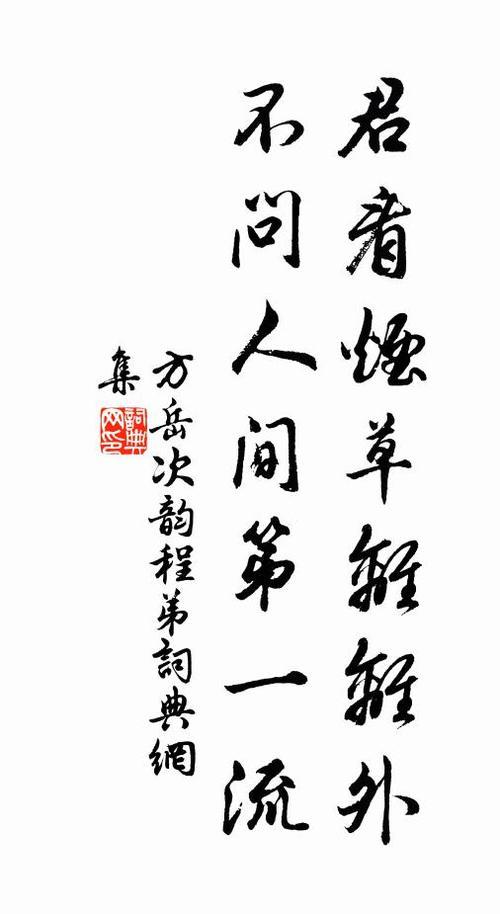 君看煙草離離外
不問人間第一流
方岳次韵程弟詞典網
集
詞典网印